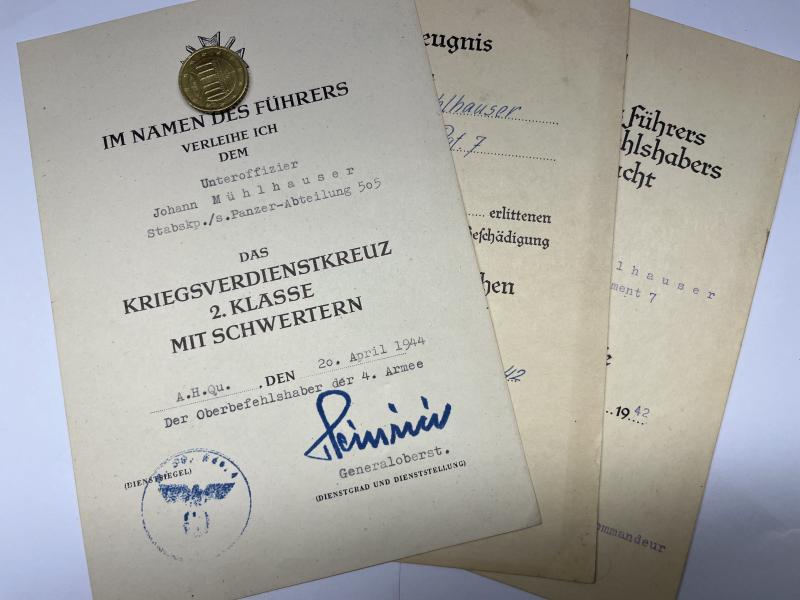 IM NAMEN DES FÜHRERS
VERLEIHE ICH
DEM
Unteroffizier
Johann Mühlhauser
Stabskp./s.Panzer-Abteilung 505
DAS
KRIEGSVERDIENSTKREUZ
2. KLASSE
MIT SCHWERTERN
A.H.Qu. , DEN 20. April 1944
Der Oberbefehlshaber der 4. Armee
Heinrici
Generaloberst.
(DIENSTSIEGEL)
(DIENSTGRAD UND DIENSTSTELLUNG)
eugnis
hlhauser
7
erlittenen
Beschädigung
hen
42
Führers
hlshabers
cht
lhauser
ment 7
e
1942
ommandeur